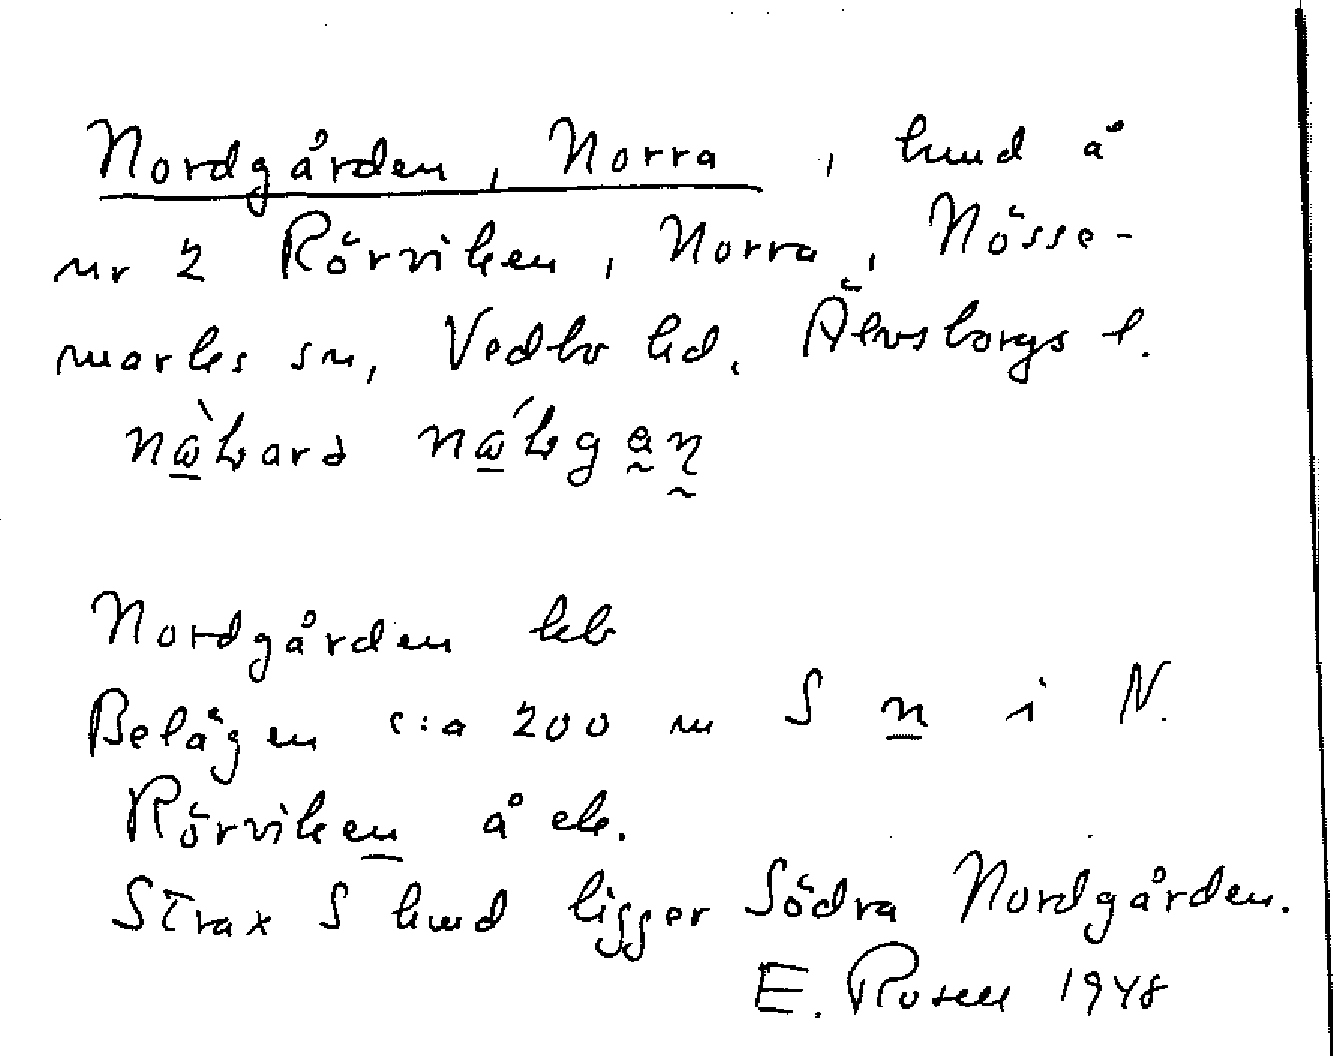 Nordgården, Norra, hmd å
nr 2 Rörviken, Norra, Nösse-
marks sn, Vedbo hd. Älvsborgs l.
Nordgården kb
Belägen c:a 200 m S n i N.
Rörviken å ek.
Strax S hmd ligger Södra Nordgården.
E. Rosell 1948